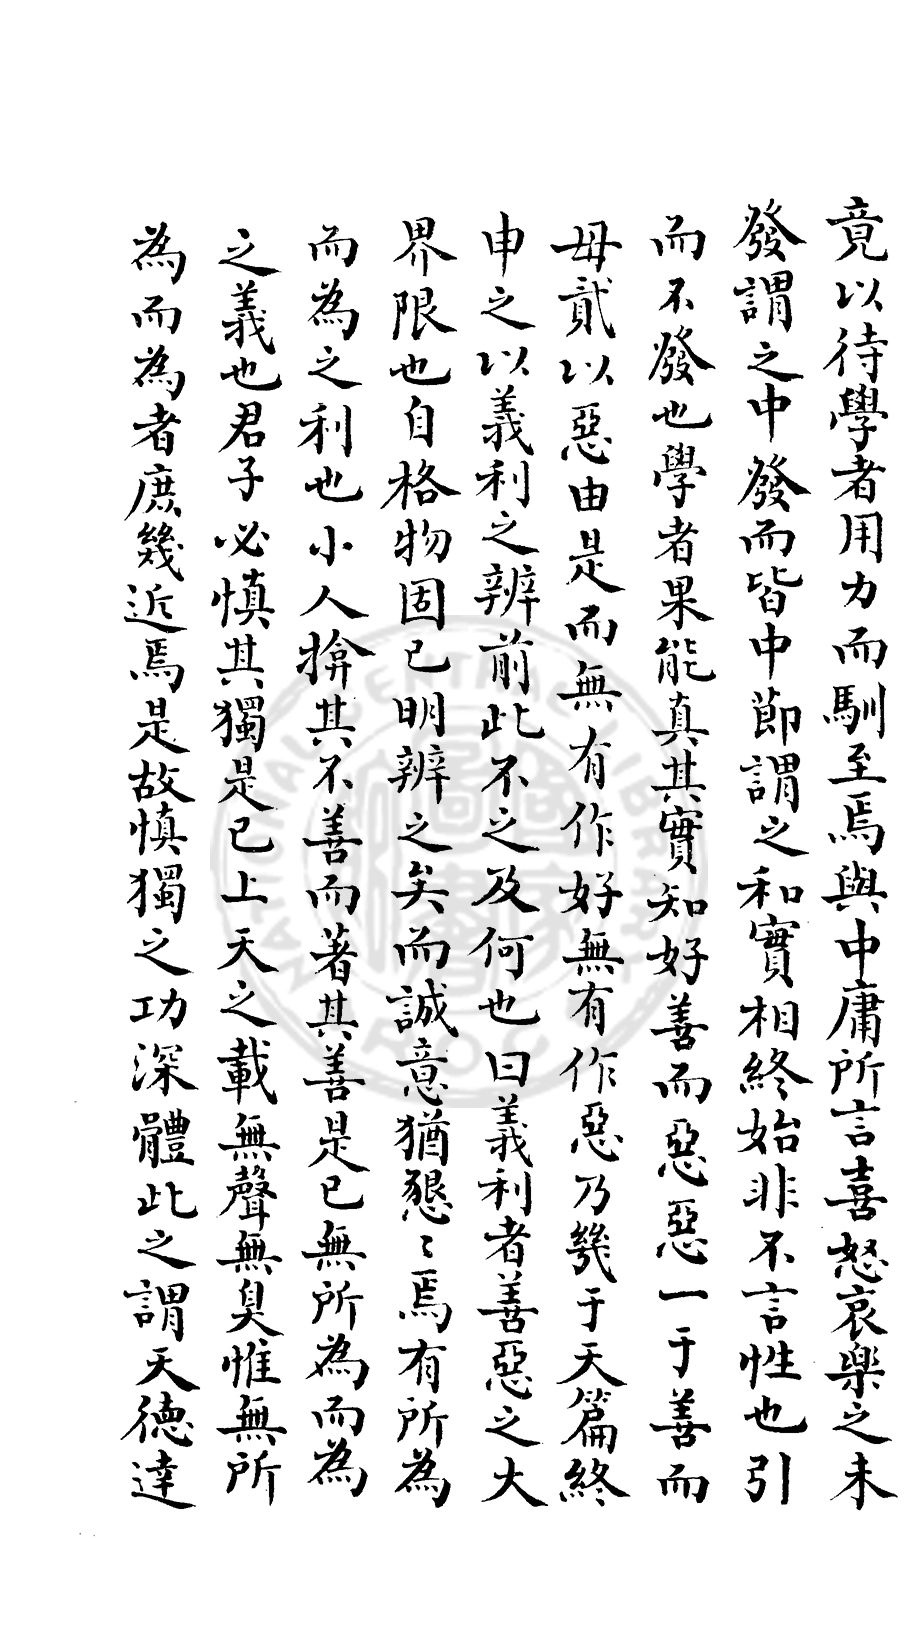 竟以待學者用力而馴至焉與中庸所言喜怒哀樂之未
發謂之中發而皆中節謂之和實相終始非不言性也引
而不發也學者果能真其實知好善而惡惡一于善而
毋貳以惡由是而無有作好無有作惡乃幾于天篇終
申之以義利之辨前此不之及何也曰義利者善惡之大
界限也自格物固已明辨之矣而誠意猶懇〻焉有所為
而為之利也小人揜其不善而著其善是已無所為而為
之義也君子必慎其獨是已上天之載無聲無臭惟無所
為而為者庶幾近焉是故慎獨之功深體此之謂天德達
NATIONAL CENTRAL LIBRARY
R.O.C.
國家圖書館